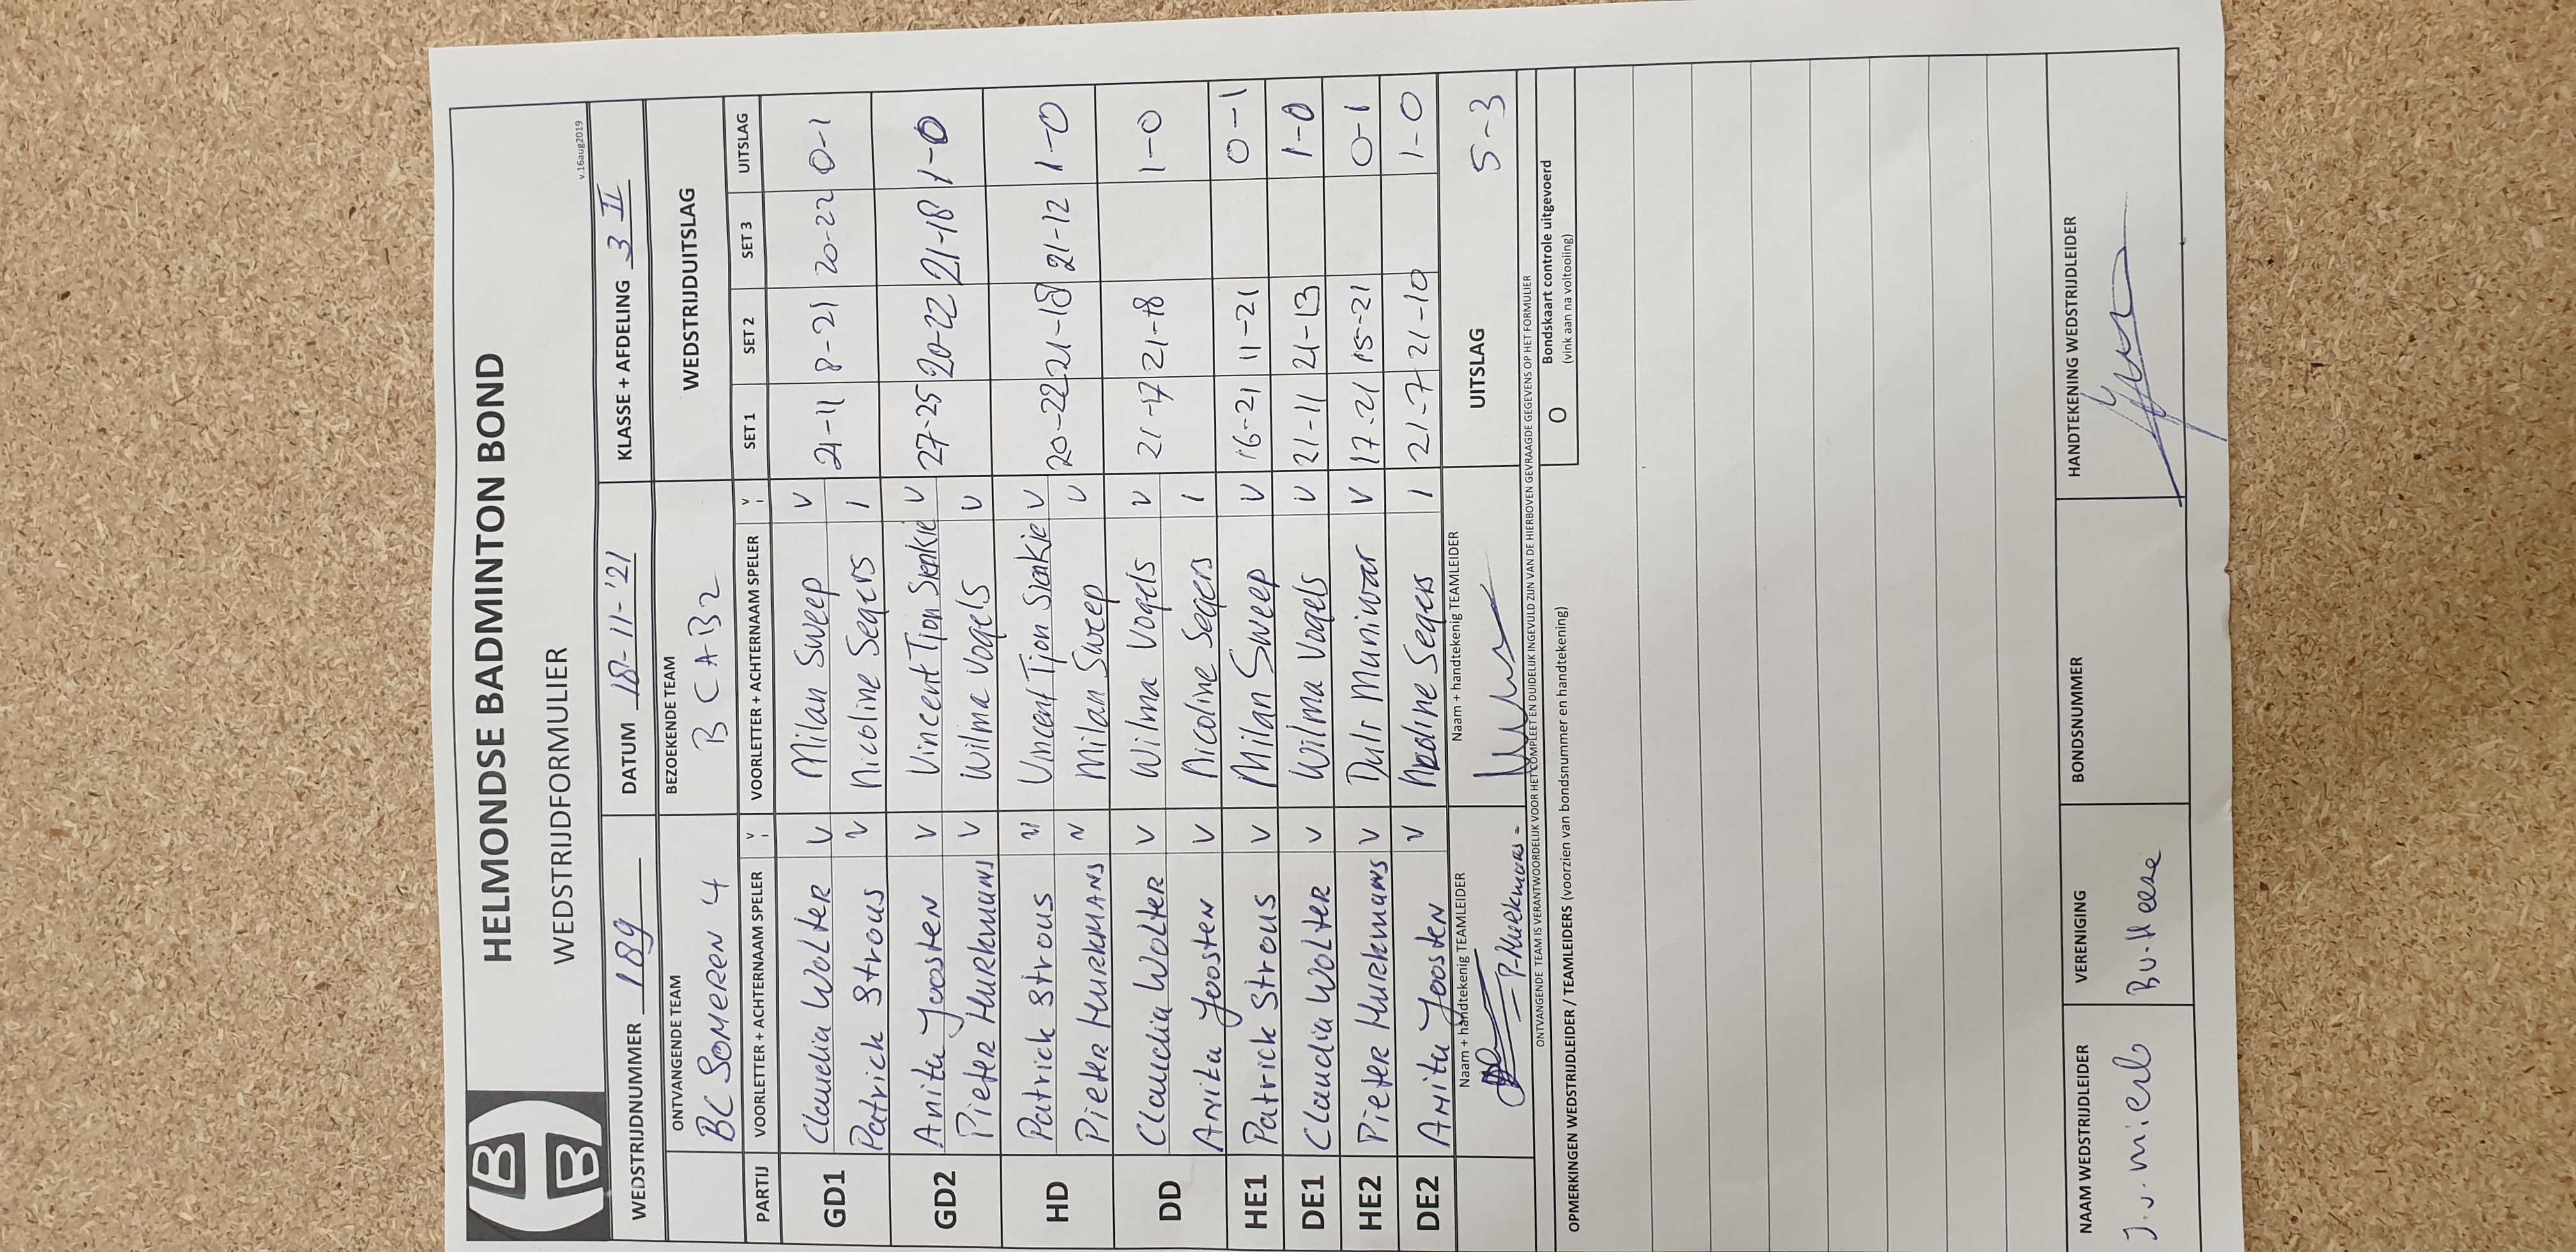 HELMONDSE BADMINTON BOND
WEDSTRIJDFORMULIER
v.16aug2019
WEDSTRIJDNUMMER 189 DATUM 18-11-'21 KLASSE + AFDELING 3 II
ONTVANGENDE TEAM BEZOEKENDE TEAM WEDSTRIJDUITSLAG
BC SOMEREN 4 BCAB2
PARTIJ VOORLETTER + ACHTERNAAM SPELER V VOORLETTER + ACHTERNAAM SPELER V SET 1 SET 2 SET 3 UITSLAG
GD1 Claudia Wolter V Milan Sweep V 21-11 8-21 20-22 0-1
Patrick Strous V Nicoline Segers /
GD2 Anita Joosten V Vincent Tjon Sienkie V 27-25 20-22 21-18 1-0
Pieter Hurkmans V Wilma Vogels V
HD Patrick Strous V Vincent Tjon Sienkie V 20-22 21-18 21-12 1-0
Pieter Hurkmans V Milan Sweep V
DD Claudia Wolter V Wilma Vogels V 21-17 21-18 1-0
Anita Joosten V Nicoline Segers /
HE1 Patrick Strous V Milan Sweep V 16-21 11-21 0-1
DE1 Claudia Wolter V Wilma Vogels V 21-11 21-13 1-0
HE2 Pieter Hurkmans V Duli Muniwar V 17-21 15-21 0-1
DE2 Anita Joosten V Segers / 21-7 21-10 1-0
Naam + handtekenig TEAMLEIDER Naam + handtekenig TEAMLEIDER UITSLAG 5-3
P. Hurkmans
ONTVANGENDE TEAM IS VERANTWOORDELIJK VOOR HET COMPLEET EN DUIDELIJK INGEVULD ZIJN VAN DE HIERBOVEN GEVRAAGDE GEGEVENS OP HET FORMULIER
OPMERKINGEN WEDSTRIJDLEIDER / TEAMLEIDERS (voorzien van bondsnummer en handtekening) O Bondskaart controle uitgevoerd
(vink aan na voltooiing)
NAAM WEDSTRIJDLEIDER VERENIGING BONDSNUMMER HANDTEKENING WEDSTRIJDLEIDER
J.v. mierlo